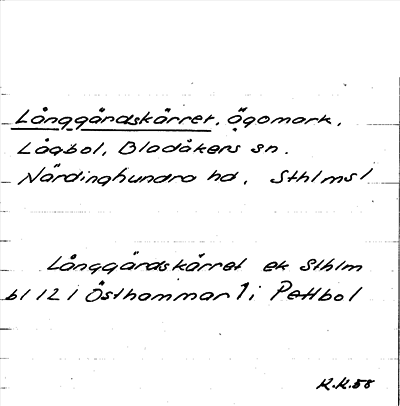 Långgärdskärret, ägomark,
Lågbol, Bladåkers sn.
Närdinghundra hd, Sthlms l
Långgärdskärret ek Sthlm
bl 12 i Östhammar 1 i Pettbol
K.K.58